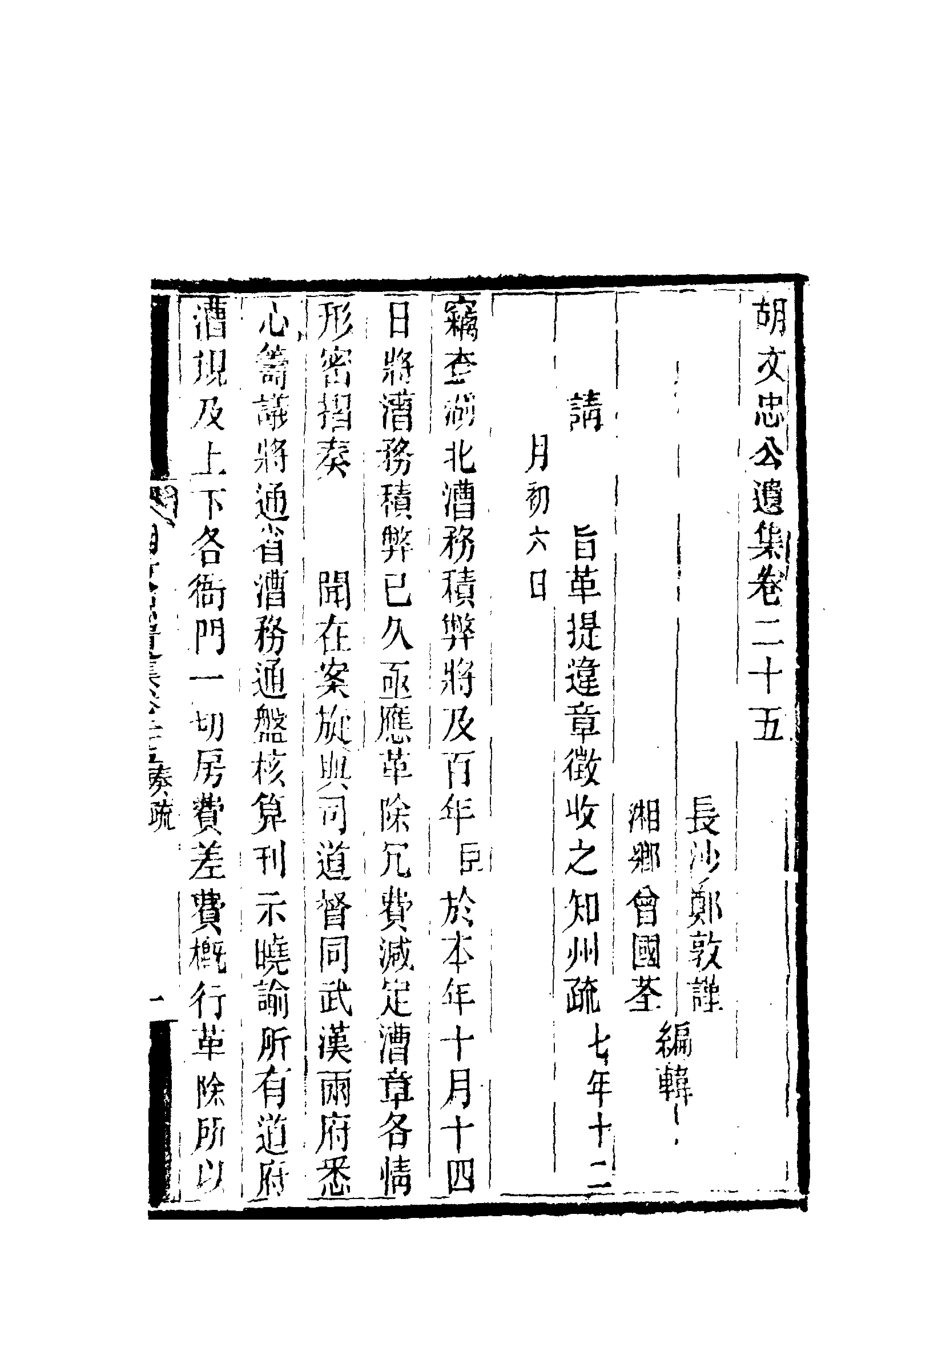 胡文忠公遺集卷二十五
長沙鄭敦謹
湘鄉曾國荃
編輯
請 旨革提違章徵收之知州疏 七年十二
月初六日
竊查湖北漕務積弊將及百年臣於本年十月十四
日將漕務積弊已久亟應革除冗費減定漕章各情
形密摺奏 聞在案旋與司道督同武漢兩府悉
心籌議將通省漕務通盤核算刊示曉諭所有道府
漕規及上下各衙門一切房費差費概行革除所以
胡文忠公遺集卷二十五奏疏 一